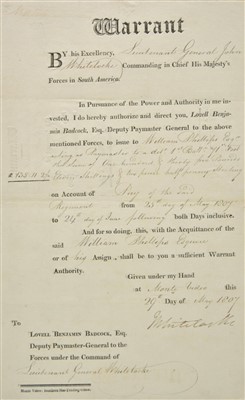 Warrant
By his Excellency, Lieutenant General John
Whitelocke Commanding in Chief His Majesty's
Forces in South America:
In Pursuance of the Power and Authority in me in-
vested, I do hereby authorize and direct you, Lovell Benja-
min Badcock, Esq. Deputy Paymaster-General to the above
mentioned Forces, to issue to William Phillipps Esqr
acting as Paymaster to a Dett 71st Foot
the Sum of One hundred & thirty
Shillings & two pence half penny Sterling
on Account of Pay of the said
Regiment from 25th day of May 1807
to 24th day of June following both Days inclusive.
And for so doing, this, with the Acquittance of the
said William Phillipps Esquire
or his Assign shall be to you a sufficient Warrant
Authority.
Given under my Hand
at Monte Video this
29th Day of May 1807
J Whitelocke
To
Lovell Benjamin Badcock, Esq.
Deputy Paymaster-General to the
Forces under the Command of
Lieutenant General Whitelocke